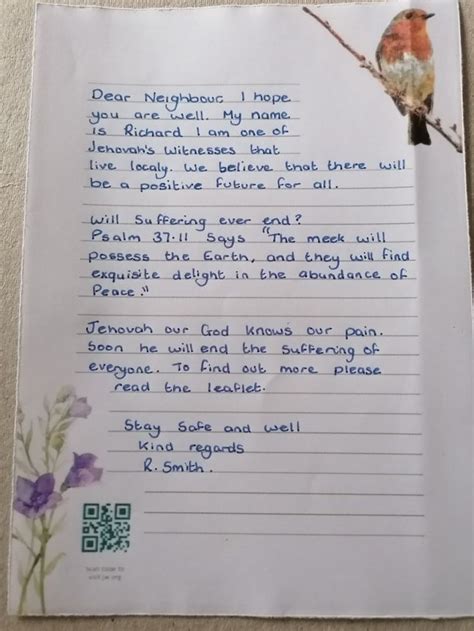 Dear Neighbour I hope
you are well. My name
is Richard I am one of
Jehovah's Witnesses that
live localy. We believe that there will
be a positive future for all.
Will Suffering ever end?
Psalm 37:11 Says "The meek will
possess the Earth, and they will find
exquisite delight in the abundance of
Peace."
Jehovah our God knows our pain.
Soon he will end the suffering of
everyone. To find out more please
read the leaflet.
Stay Safe and well
Kind regards
R. Smith.
visit jw.org